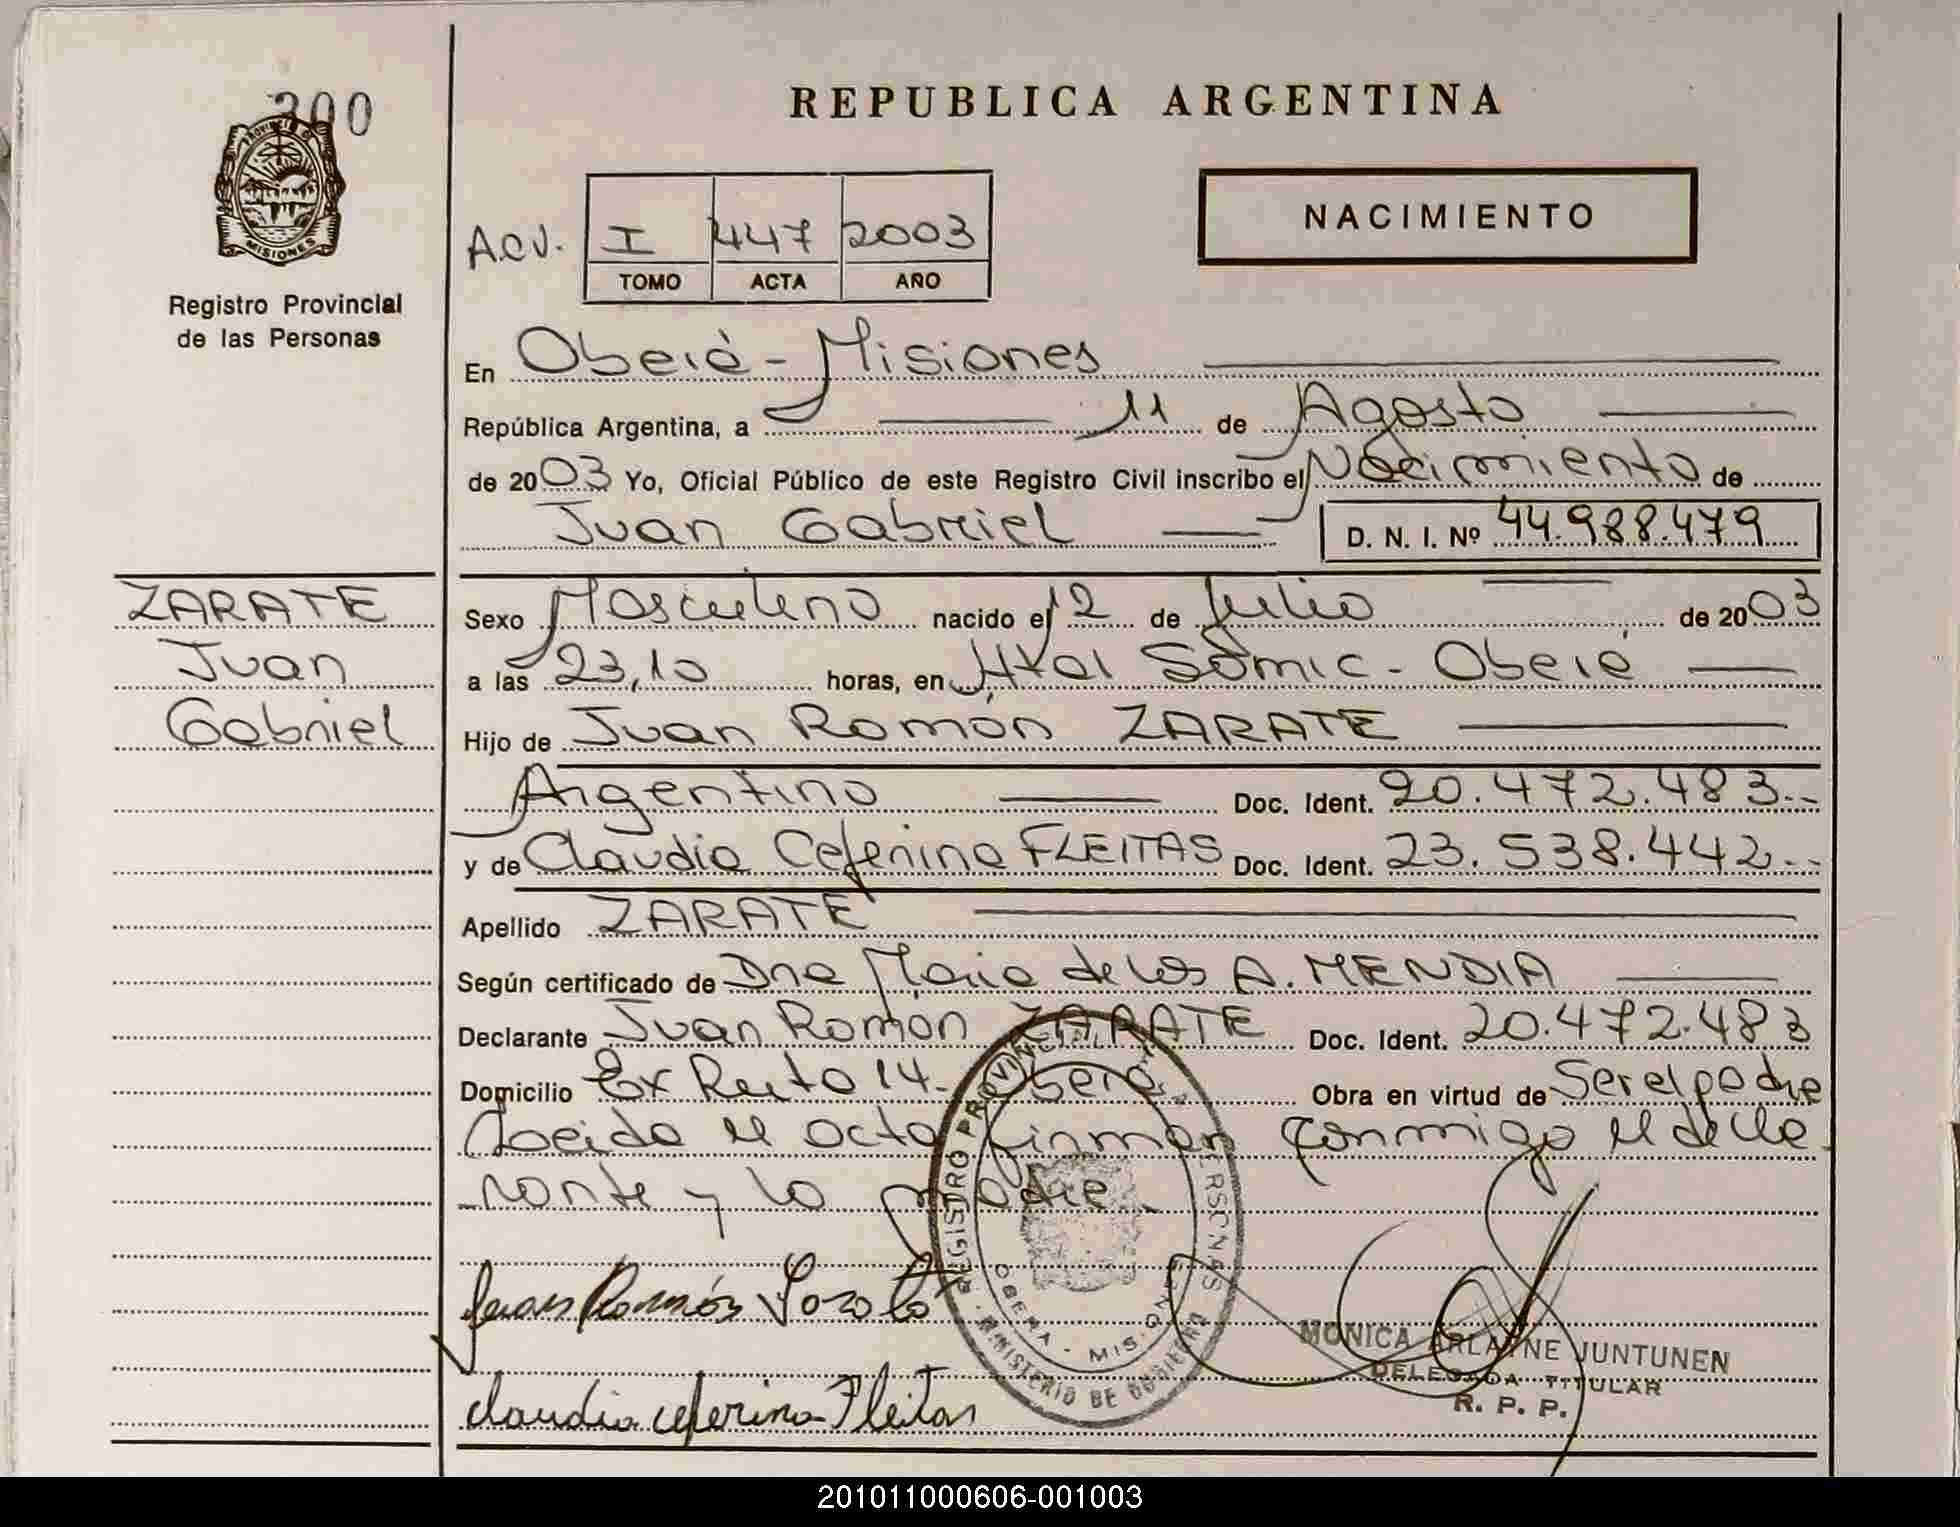 300
REPUBLICA ARGENTINA
PROVINCIA DE MISIONES
Registro Provincial
de las Personas
NACIMIENTO
ACU. I 447 2003
TOMO ACTA AÑO
En Oberá - Misiones
República Argentina, a 11 de Agosto
de 2003 Yo, Oficial Público de este Registro Civil inscribo el Nacimiento de
Juan Gabriel D. N. I. Nº 44.988.479
ZARATE
Juan
Gabriel
Sexo Masculino nacido el 12 de Julio de 2003
a las 23,10 horas, en Htal Samic - Oberá
Hijo de Juan Ramón ZARATE
Argentino Doc. Ident. 20.472.483
y de Claudia Ceferina FLEITAS Doc. Ident. 23.538.442
Apellido ZARATE
Según certificado de Dra Maria de los A. MENDIA
Declarante Juan Ramón ZARATE Doc. Ident. 20.472.483
Domicilio Ex Ruta 14 - Oberá Obra en virtud de Ser el padre
Leida el acta firman conmigo el decla
rante y la madre.
REGISTRO PROVINCIAL PERSONAS
OBERA - MISIONES
MINISTERIO DE GOBIERNO
Juan Ramón Zarate
MONICA ARLAYNE JUNTUNEN
DELEGADA TITULAR
R. P. P.
Claudia Ceferina Fleitas
201011000606-001003